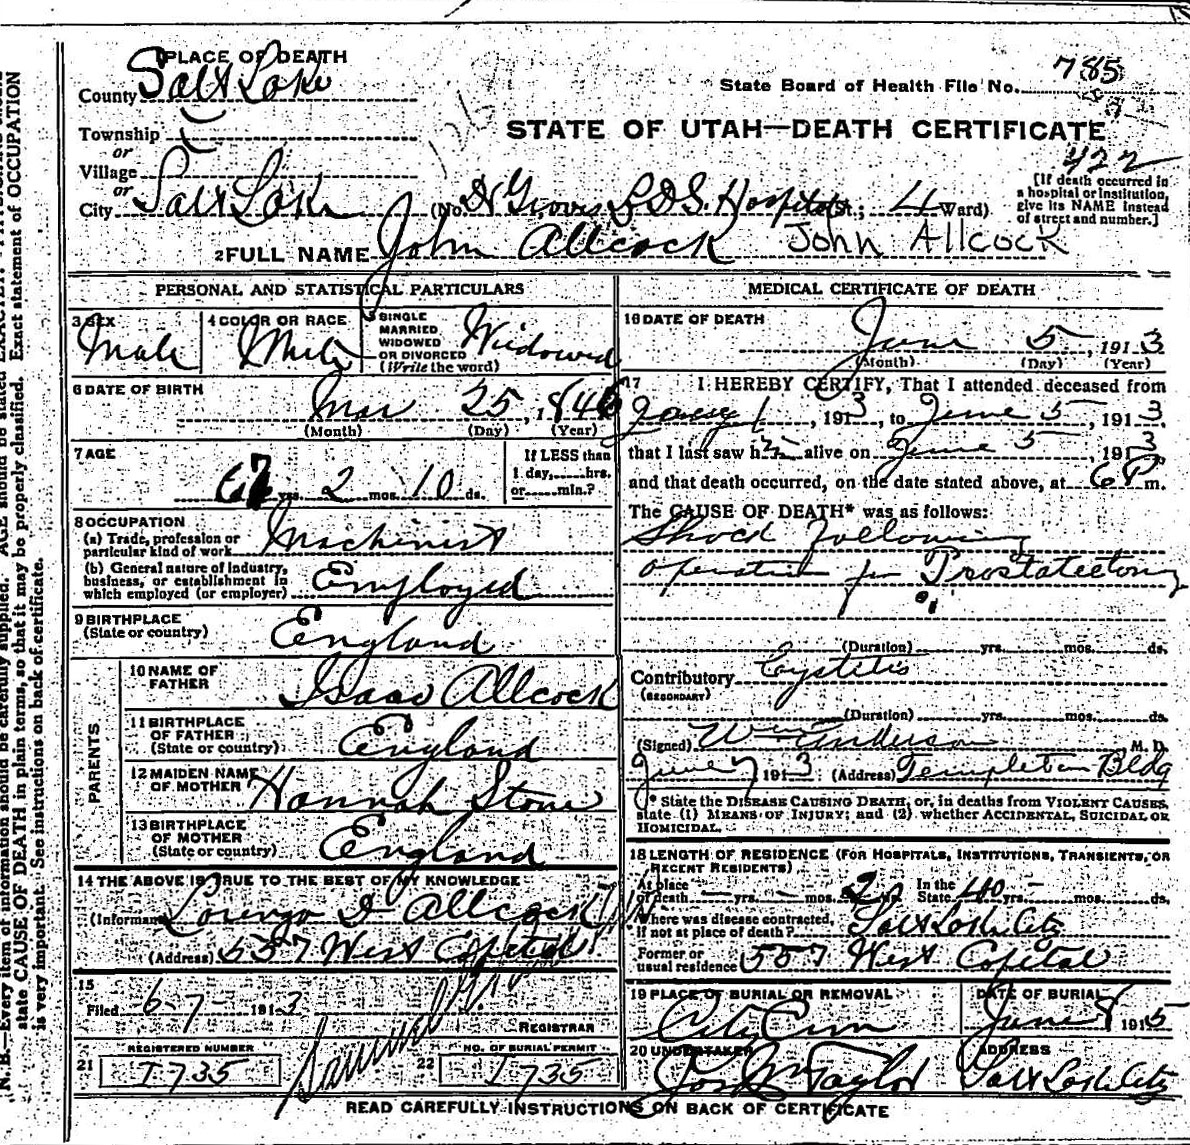 1 PLACE OF DEATH
County Salt Lake
State Board of Health File No. 785
Township
or
Village
or
City Salt Lake
STATE OF UTAH—DEATH CERTIFICATE
422
(No. Dr Groves L.D.S. Hospital St.; 4 Ward)
[If death occurred in
a hospital or institution,
give its NAME instead
of street and number.]
2 FULL NAME John Allcock John Allcock
PERSONAL AND STATISTICAL PARTICULARS
3 SEX
Male
4 COLOR OR RACE
White
5 SINGLE
MARRIED
WIDOWED
OR DIVORCED
(Write the word)
Widowed
6 DATE OF BIRTH
Mar 25, 1846
(Month) (Day) (Year)
7 AGE
67 yrs. 2 mos. 10 ds.
If LESS than
1 day,......hrs.
or......min.?
8 OCCUPATION
(a) Trade, profession or
particular kind of work Machinist
(b) General nature of industry,
business, or establishment in
which employed (or employer) Employed
9 BIRTHPLACE
(State or country) England
PARENTS
10 NAME OF
FATHER Isaac Allcock
11 BIRTHPLACE
OF FATHER
(State or country) England
12 MAIDEN NAME
OF MOTHER Hannah Stone
13 BIRTHPLACE
OF MOTHER
(State or country) England
14 THE ABOVE IS TRUE TO THE BEST OF MY KNOWLEDGE
(Informant) Lorenzo D Allcock
(Address) 557 West Capital
15
Filed 6-7- 1913
REGISTRAR
REGISTERED NUMBER
21 1735
NO. OF BURIAL PERMIT
22 1735
MEDICAL CERTIFICATE OF DEATH
16 DATE OF DEATH
June 5, 1913
(Month) (Day) (Year)
17 I HEREBY CERTIFY, That I attended deceased from
1, 1913, to June 5, 1913,
that I last saw h alive on June 5, 1913
and that death occurred, on the date stated above, at 6 P m.
The CAUSE OF DEATH* was as follows:
Shock following
operation for Prostatectomy
(Duration) yrs. mos. ds.
Contributory Cystitis
(SECONDARY)
(Duration) yrs. mos. ds.
(Signed) Wm Anderson M. D.
June 7 1913 (Address) Templeton Bldg
* State the DISEASE CAUSING DEATH, or, in deaths from VIOLENT CAUSES,
state (1) MEANS OF INJURY; and (2) whether ACCIDENTAL, SUICIDAL OR
HOMICIDAL.
18 LENGTH OF RESIDENCE (FOR HOSPITALS, INSTITUTIONS, TRANSIENTS, OR
RECENT RESIDENTS)
At place
of death — yrs. — mos. 2 ds. In the
State 40 yrs. — mos. ds.
Where was disease contracted,
if not at place of death? Salt Lake City
Former or
usual residence 557 West Capital
19 PLACE OF BURIAL OR REMOVAL
City Cem
DATE OF BURIAL
June 8 1913
20 UNDERTAKER
Jos Wm Taylor
ADDRESS
Salt Lake City
READ CAREFULLY INSTRUCTIONS ON BACK OF CERTIFICATE
N. B.—Every item of information should be carefully supplied. AGE should be stated EXACTLY.
state CAUSE OF DEATH in plain terms, so that it may be properly classified. Exact statement of OCCUPATION
is very important. See instructions on back of certificate.